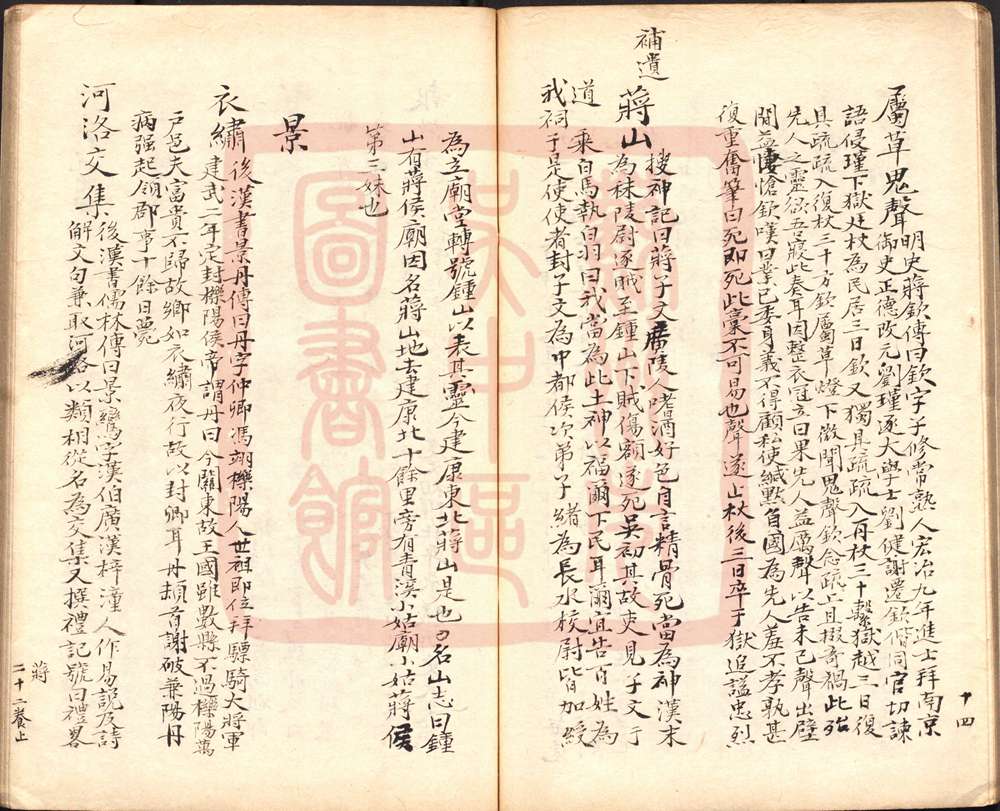 屬草鬼聲 明史蔣欽傳曰欽字子修常熟人宏治九年進士拜南京
御史正德改元劉瑾逐大學士劉健謝遷欽偕同官切諫
語侵瑾下獄廷杖為民居三日欽又獨具疏疏入再杖三十繫獄越三日復
具疏疏入復杖三十方欽屬草燈下微聞鬼聲欽念疏上且掇奇禍此殆
先人之靈欲吾寢此奏耳因整衣冠立曰果先人盍厲聲以告未已聲出壁
間益悽愴欽嘆曰業已委身義不得顧私使緘默負國為先人羞不孝孰甚
復坐奮筆曰死即死此稾不可易也聲遂止杖後三日卒于獄追諡忠烈
補遺
蔣山 搜神記曰蔣子文廣陵人嗜酒好色自言精骨死當為神漢末
為秣陵尉逐賊至鍾山下賊傷額遂死吳初其故吏見子文于
道乘白馬執白羽曰我當為此土神以福爾下民耳爾宜告百姓為
我祠于是使使者封子文為中都侯次弟子緒為長水校尉皆加綬
為立廟堂轉號鍾山以表其靈今建康東北蔣山是也〇名山志曰鍾
山有蔣侯廟因名蔣山地去建康北十餘里旁有青溪小姑廟小姑蔣侯
第三妹也
景
衣繡 後漢書景丹傳曰丹字仲卿馮翊櫟陽人世祖即位拜驃騎大將軍
建武二年定封櫟陽侯帝謂丹曰今關東故王國雖數縣不過櫟陽萬
戶邑夫富貴不歸故鄉如衣繡夜行故以封卿耳丹頓首謝破兼陽丹
病强起領郡事十餘日薨
河洛交集 後漢書儒林傳曰景鸞字漢伯廣漢梓潼人作易說及詩
解文句兼取河洛以類相從名為交集又撰禮記號曰禮畧
十四
蔣
二十二養上